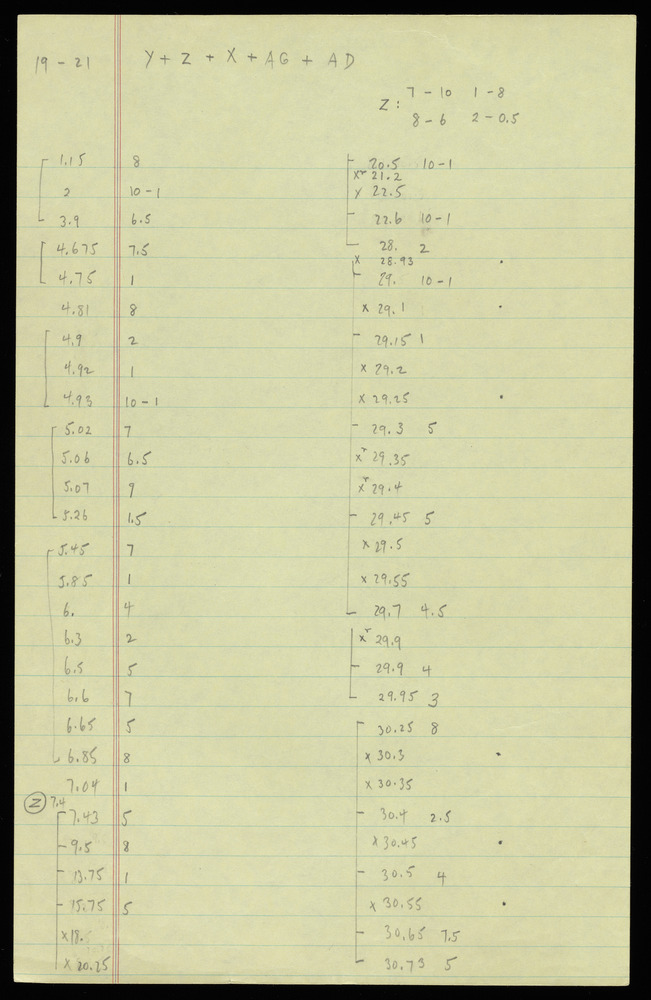 19 - 21 Y + Z + X + AG + AD
Z : 7 - 10 1 - 8
8 - 6 2 - 0.5
1.15 8
2 10 - 1
3.9 6.5
4.675 7.5
4.75 1
4.81 8
4.9 2
4.92 1
4.93 10 - 1
5.02 7
5.06 6.5
5.07 9
5.26 1.5
5.45 7
5.85 1
6. 4
6.3 2
6.5 5
6.6 7
6.65 5
6.85 8
7.04 1
Z 7.4
7.43 5
- 9.5 8
- 13.75 1
- 15.75 5
x 18.
x 20.25
- 20.5 10 - 1
x r 21.2
x 22.5
- 22.6 10 - 1
28. 2
x 28.93
- 29. 10 - 1
x 29.1
- 29.15 1
x 29.2
x 29.25
- 29.3 5
x r 29.35
x r 29.4
- 29.45 5
x 29.5
x 29.55
29.7 4.5
x r 29.9
- 29.9 4
29.95 3
30.25 8
x 30.3
x 30.35
- 30.4 2.5
x 30.45
- 30.5 4
x 30.55
- 30.65 7.5
- 30.73 5